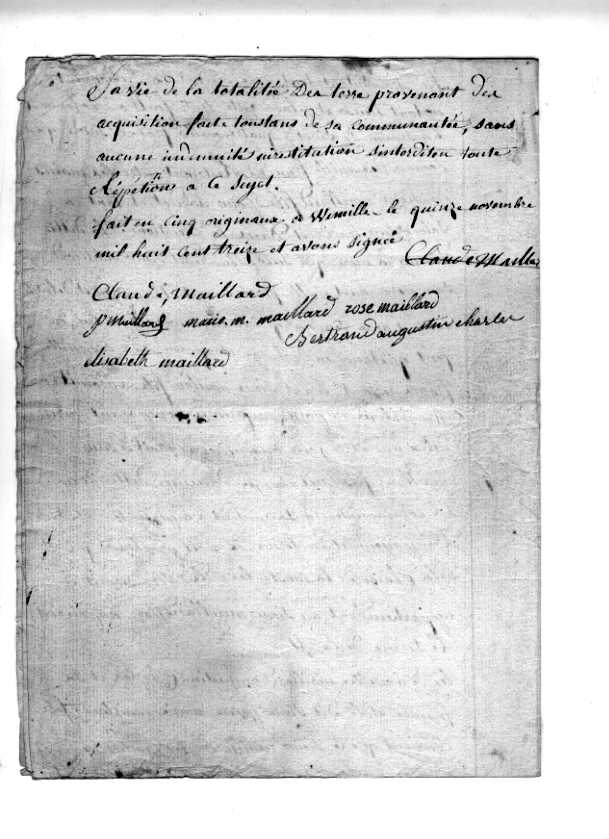 Sa vie de la totalitée Des terre provenant des
acquisition faite de sa communautée, sans
aucune indemnité ni restitution toute
Répétions a ce Sujet.
fait en cinq originaux a Wemille le quinze novembre
mil huit cent treize et avons Signé
Claude Mailla
Claude, Maillard
p Maillard marie. m. maillard rose maillard
Bertrand augustin charles
elisabeth maillard